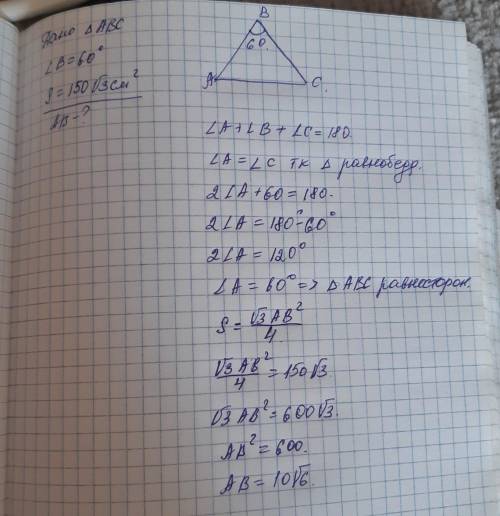 Дано △ABC
∠B=60°
S=150√3 см²
AB-?
B
60.
A
C.
∠A+∠B+∠C=180.
∠A=∠C тк △ равнобедр.
2∠A+60=180.
2∠A=180°-60°
2∠A=120°
∠A=60°=> △ABC равносторон.
S=√3 AB²/4.
√3 AB²/4=150√3
√3 AB²=600√3.
AB²=600.
AB=10√6.